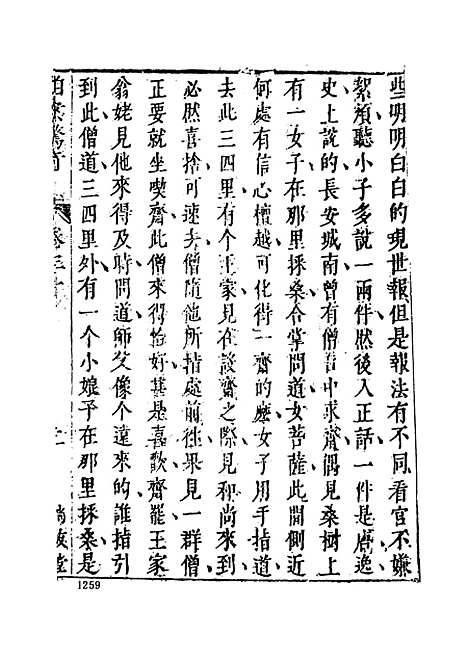 些明明白白的現世報但是報法有不同看官不嫌
絮煩聽小子多說一兩件然後入正話一件是唐逸
史上說的長安城南曾有僧日中求齋偶見桑樹上
有一女子在那里採桑合掌問道女菩薩此間側近
何處有信心檀越可化得一齋的麼女子用手指道
去此三四里有个王家見在設齋之際見和尚來到
必然喜捨可速去僧隨他所指處前往果見一群僧
正要就坐喫齋此僧來得恰好甚是喜歡齋罷王家
翁姥見他來得及時問道師父像个遠來的誰指引
到此僧道三四里外有一个小娘子在那里採桑是
拍案驚奇 卷三十 二 尚友堂
1259